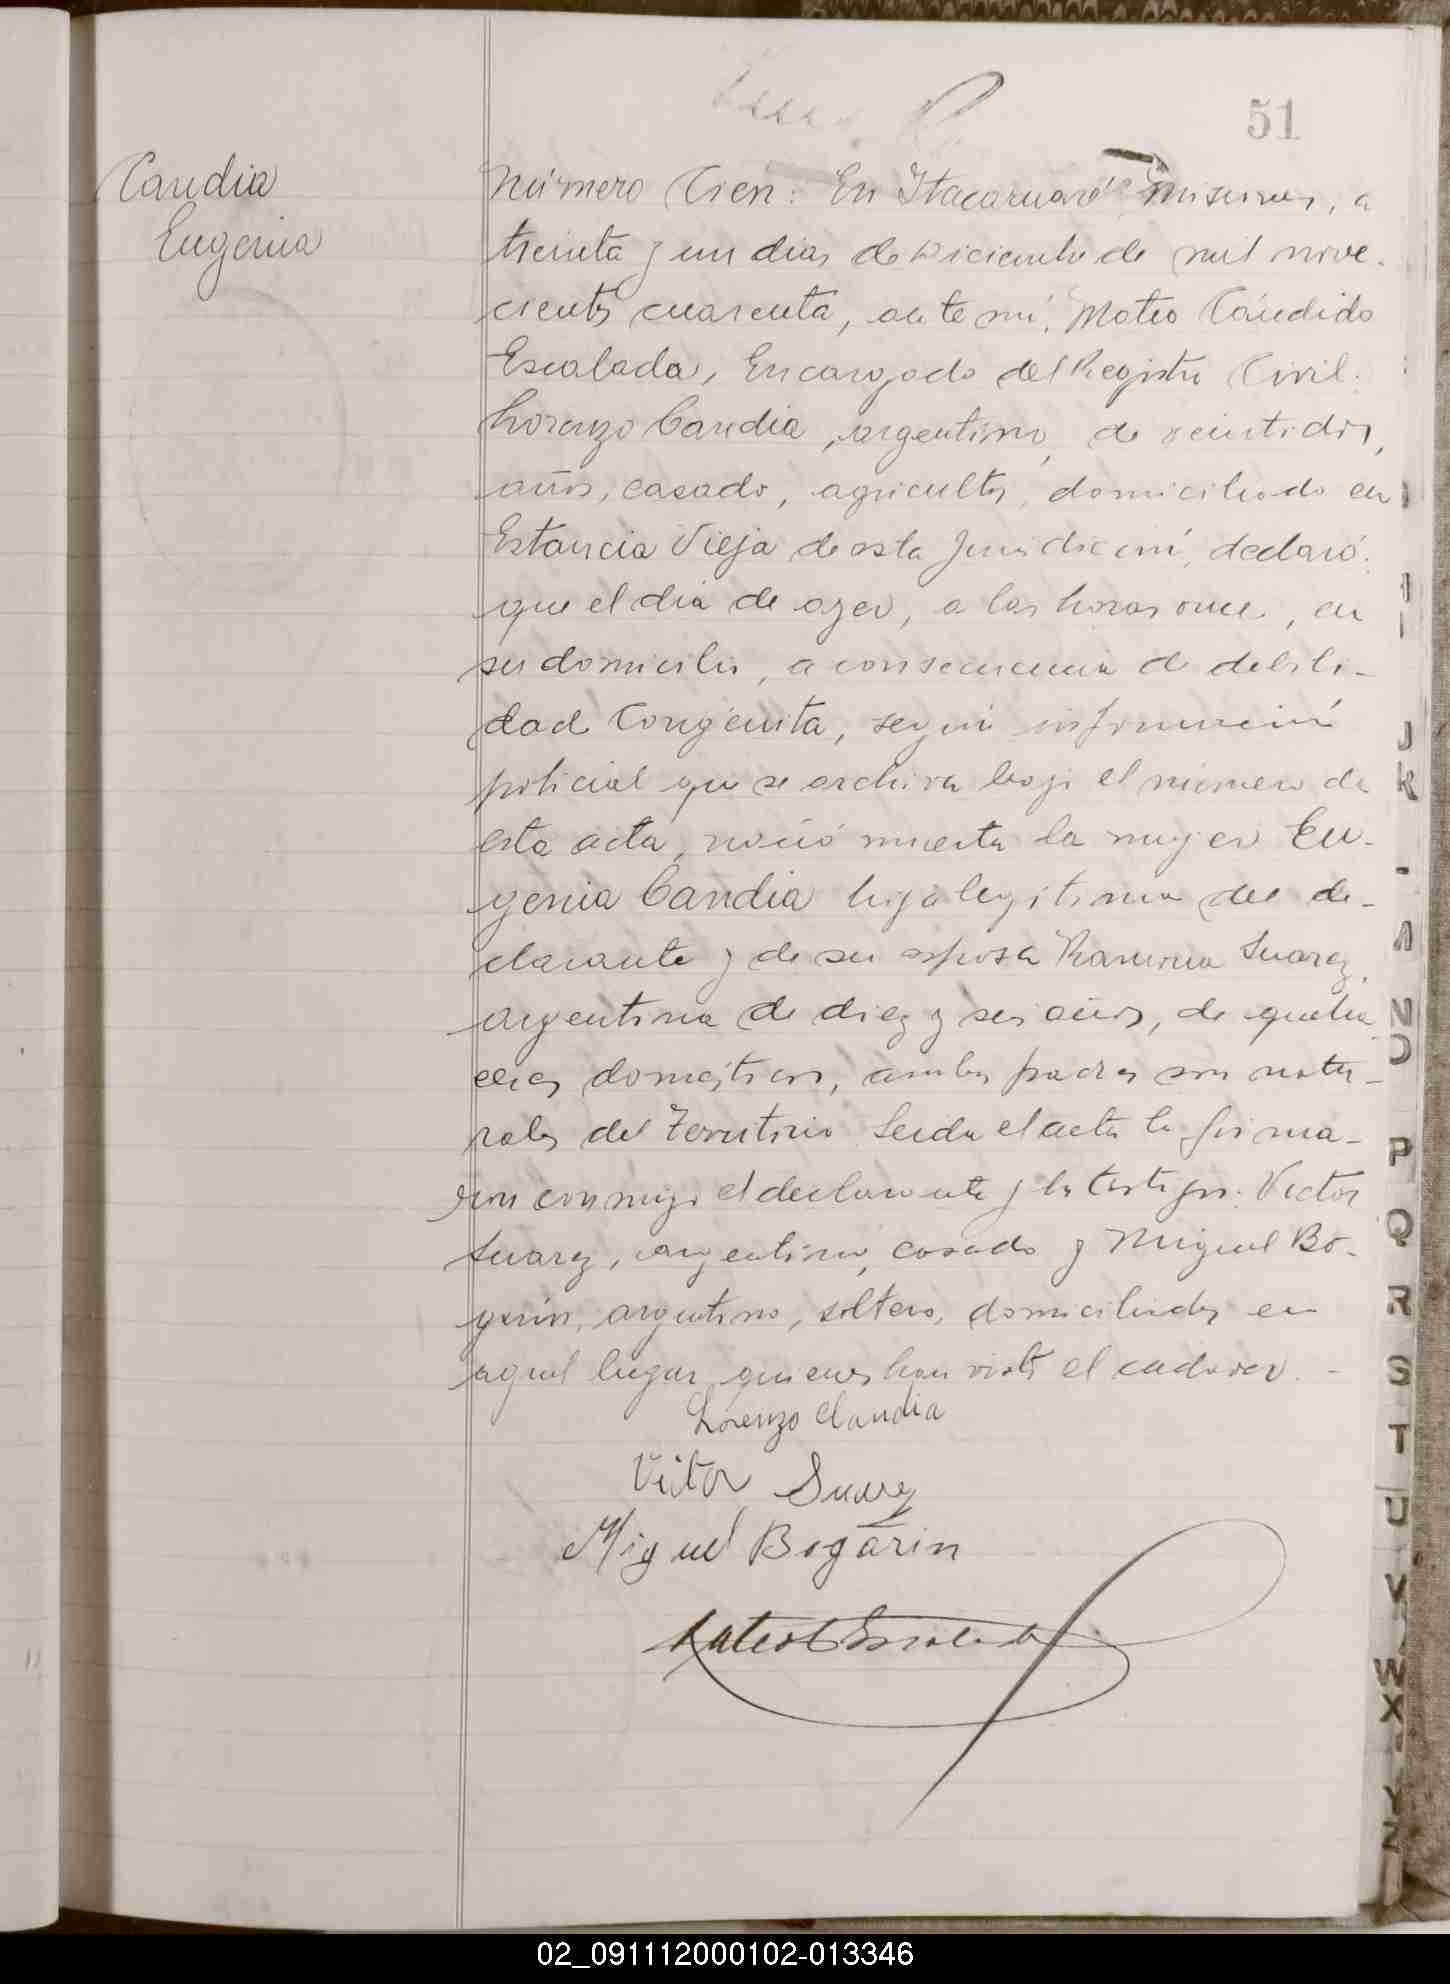 51
Candia
Eugenia
Número Cien: En Itacaruaré Misiones, a
treinta y un dias de Diciembre de mil nove-
cientos cuarenta, ante mí, Mateo Cándido
Escalada, Encargado del Registro Civil.
Lorenzo Candia, argentino, de veintidos,
años, casado, agricultor, domiciliado en
Estancia Vieja de esta Jurisdicción, declaró:
que el dia de ayer, a las horas once, en
su domicilio, a consecuencia de debili-
dad Congenita, según información
policial que se archiva bajo el número de
esta acta, nació muerta la mujer Eu-
genia Candia hija legitima del de-
clarante y de su esposa Ramona Suarez,
argentina de diez y seis años, de queha-
ceres domesticos, ambos padres son natu-
rales del Territorio. Leida el acta la firma-
ron conmigo el declarante y los testigos: Victor
Suarez, argentino, casado y Miguel Bo-
garin, argentino, soltero, domiciliados en
aquel lugar quienes han visto el cadaver. -
Lorenzo Candia
Vitor Suarez
Miguel Bogarin
Mateo C Escalada
J
K
N
O
P
Q
R
S
T
U
V
W
X
Y
Z
02_091112000102-013346